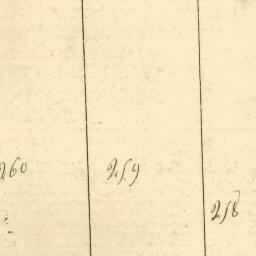 260
259
258